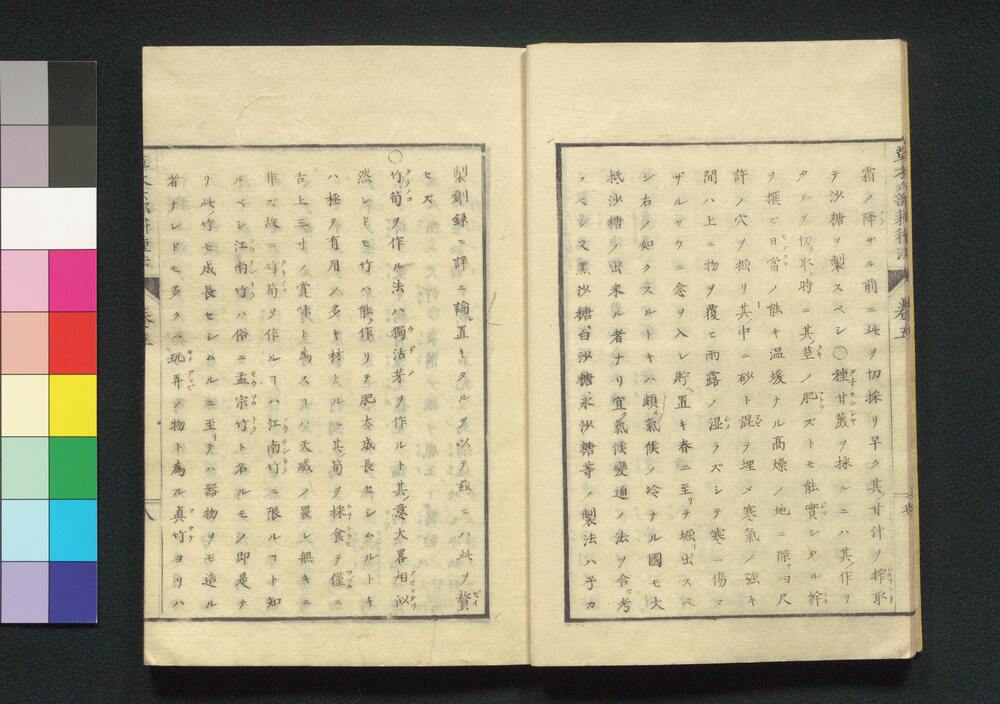 霜ノ降サル前ニ此ヲ切採リ早ク其ノ甘汁ヲ搾取
テ沙糖ヲ製スベシ〇種甘蔗ヲ採ルニハ其ノ作リ
タルヲ切取時ニ其莖ノ肥ズトモ能實シタル幹
ヲ撰ビ日當ノ能キ温煖ナル高燥ノ地ニ深サ四尺
許ノ穴ヲ掘リ其中ニ砂ト混テ埋メ寒氣ノ強キ
間ハ上ニ物ヲ覆ヒ雨露ノ湿ラズシテ寒ニ傷マ
ザルヤウニ念ヲ入レ貯ヘ置キ春ニ至リテ堀出スベ
シ右ノ如クスルトキハ頗氣候ノ冷ナル國モ大
抵沙糖ノ出来ル者ナリ宜ク氣候變通ノ法ヲ合考
スベシ又黒沙糖白沙糖氷沙糖等ノ製法ハ予カ
製劑録ニ詳ニ論置キタルヲ以テ茲ニ此ヲ贅
セズ
〇竹筍ヲ作ル法ハ獨活芽ヲ作ルト其ノ意大畧相似
然レドモ竹ハ能作リテ肥大成長セシムルトキ
ハ極テ有用ノ多キ材木ル
其筍ヲ採食テ僅ニ
舌上三寸ノ賞味ト為スコハ天威ノ畏レ無キニ
非ズ故ニ竹筍ヲ作ルコハ江南竹ニ限ルコト知
ルベシ江南竹ハ俗ニ孟宗竹ト名ルモノ即是ナ
リ此ノ竹モ成長セシムルニ至リテハ器物ヲモ造ル
者ナレドモ多クハ玩弄ノ物ト為ル真竹ヨリハ
卷五